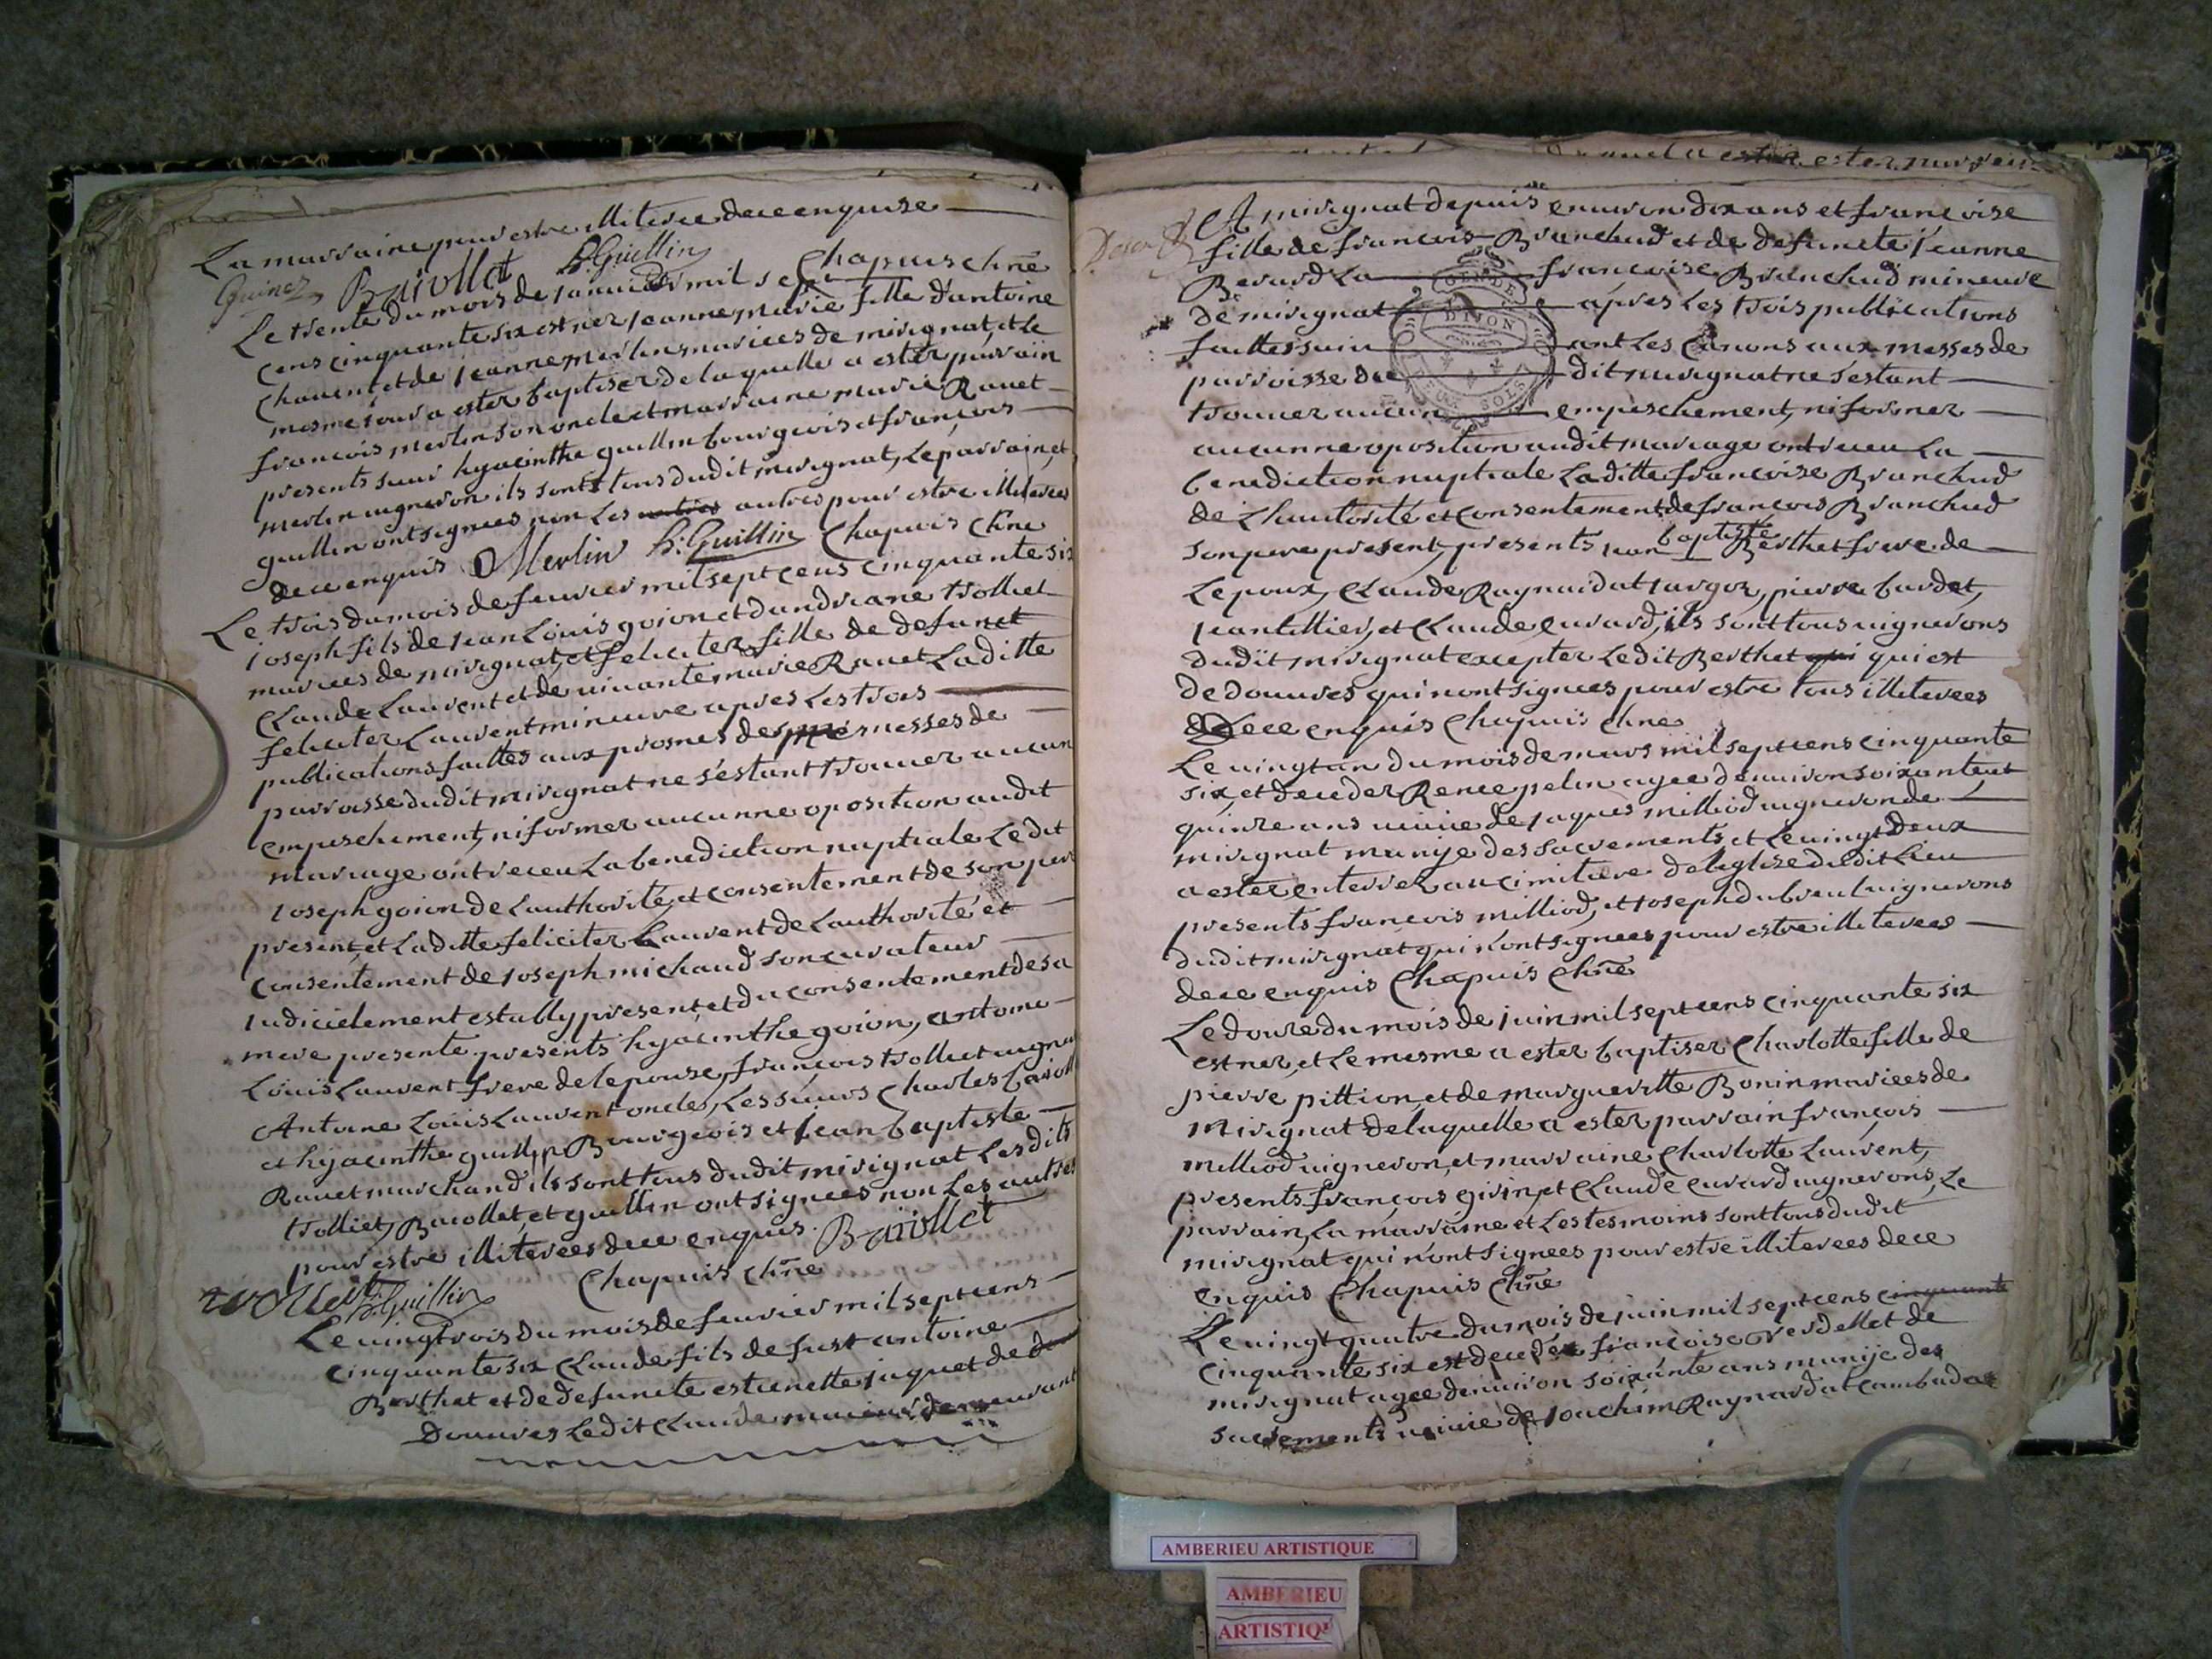 La marraine pour estre illiteree de ce enquise
Guinet Baiollet h: Guillin Chapuis Chne
Le trente du mois de janvier mil sept
cens cinquante six est nez jeanne marie fille d'antoine
Chavent et de jeanne merlin mariees de mirignat, et le
mesme jour a ester baptiser de laquelle a ester parrain
francois merlin son oncle et marraine marie Ravet
presents sieur hyacinthe guillin bourgeois et françois
merlin vigneron ils sonts tous dudit mirignat, Le parrain, et
guillin ont signees non Les autres pour estre illiterees
de ce enquis Merlin h: Guillin Chapuis Chne
Le trois du mois de fevrier mil sept cens cinquante six
joseph fils de jean Louis goion et d'andreane trolliet
mariees de mirignat, et feliciter fille de defunct
Claude Laurent et de vivante marie Ravet Laditte
feliciter Laurent mineure apres Les trois
publications faittes aux prosnes des messes de
parroisse dudit mirignat ne s'estant trouver aucun
empeschement, ni former aucunne oposition audit
mariage ont receu La benediction nuptiale Le dit
joseph goion de L'authorité, et consentement de son pere
present, et Laditte feliciter Laurent de L'authorité et
consentement de joseph michaud son curateur
judicielement estably present et du consentement de sa
mere presente presents hyacinthe goion, antoine
Louis Laurent frere de lepouse, françois trolliet vigne
Antoine Louis Laurent oncles, Les sieurs Charles baioll
et hyacinthe guillin Bourgeois et jean baptiste
Ravet marchand ils sont tous dudit mirignat Les dits
trolliet, Baiollet, et guillin ont signees non Les autres
pour estre illiterees de ce enquis. Baiollet
trolliet h: Guillin Chapuis Chne
Le vingtrois du mois de fevrier mil sept cens
cinquante six Claude fils de fust antoine
Berthet et de defuncte estienette jaquet de
Douvres Ledit Claude demeurant
A mirignat depuis environ dix ans et francoise
fille de francois Branchud et de defuncte jeanne
Berard La francoise Branchud mineure
de mirignat apres Les trois publications
faittes suiv ant Les canons aux messes de
parroisse du dit mirignat ne s'estant
trouver aucun empeschement, ni former
aucunne oposition audit mariage ont receu La
benediction nuptiale Laditte francoise Branchud
de L'hautorité et consentement de francois Branchud
son pere present, presents jean baptiste Berthet frere de
Lepoux, Claude Raynaud at jargoz, pierre bardet,
jean tillier, et Claude evrard, ils sont tous vignerons
dudit mirignat excepter Ledit Berthet qui qui est
de douvres qui n'ont signees pour estre tous illiterees
de ce enquis Chapuis Chne
Le vingt un du mois de mars mil sept cens cinquante
six, et deceder Renee pelin agee denviron soixante, et
quinze ans veuve de jaques milliod vigneron de
mirignat munye des sacrements, et Le vingt deux
a ester enterrer au cimitiere de leglise dudit Lieu
presents francois milliod, et joseph dubreul vignerons
dudit mirignat qui n'ont signees pour estre illiterees
de ce enquis Chapuis Chne
Le douze du mois de juin mil sept cens cinquante six
est nez, et Le mesme a ester baptiser Charlotte fille de
pierre pittion, et de margueritte Bonin mariees de
mirignat de laquelle a ester parrain françois
milliod vigneron, et marraine Charlotte Laurent,
presents françois girin, et Claude evrard vignerons, Le
parrain, La marraine et Les tesmoins sont tous dudit
mirignat qui n'ont signees pour estre illiterees de ce
enquis Chapuis Chne
Le vingt quatre du mois de juin mil sept cens cinquante
cinquante six est decedee françoise verdellet de
mirignat agee denviron soixante ans munije des
sacrements veuve de jouachim Raynard at cambadoz
AMBERIEU ARTISTIQUE
AMBERIEU
ARTISTIQ